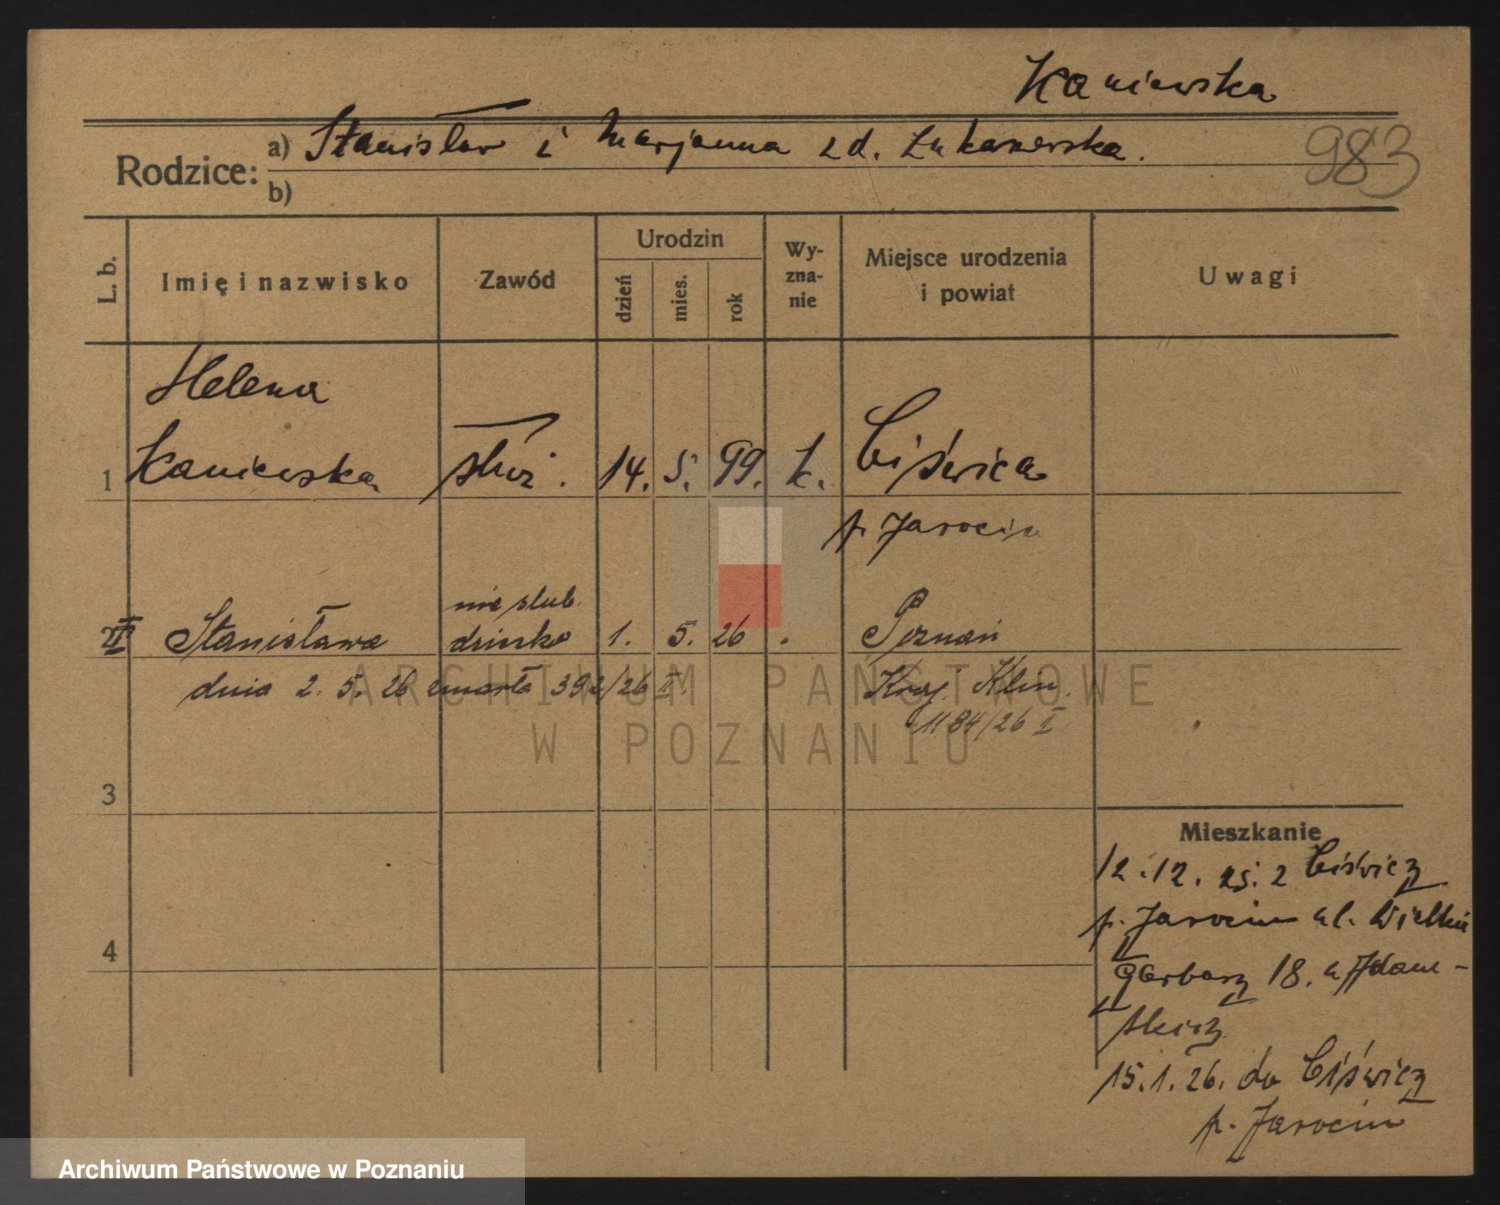 Kaniewska
Rodzice: a) Stanisław i Marjanna zd. Łukaszewska.
983
b)
L. b.
Imię i nazwisko
Zawód
Urodzin
dzień
mies.
rok
Wy-
zna-
nie
Miejsce urodzenia
i powiat
Uwagi
Helena
1 Kaniewska służ. 14. 5. 99. k. Ciświca
p. Jarocin
nieślub.
2 II Stanisława dziecko 1. 5. 26 " Poznań
dnia 2. 5. 26 zmarła 392/26 II. Kraj. Klin.
1184/26 I
3
4
Mieszkanie
12.12.25. z Ciświcy
p. Jarocin ul. Wielkie
Garbary 18. u Adam-
skiej
15.1.26. do Ciświcy
p. Jarocin
ARCHIWUM PAŃSTWOWE
W POZNANIU
Archiwum Państwowe w Poznaniu